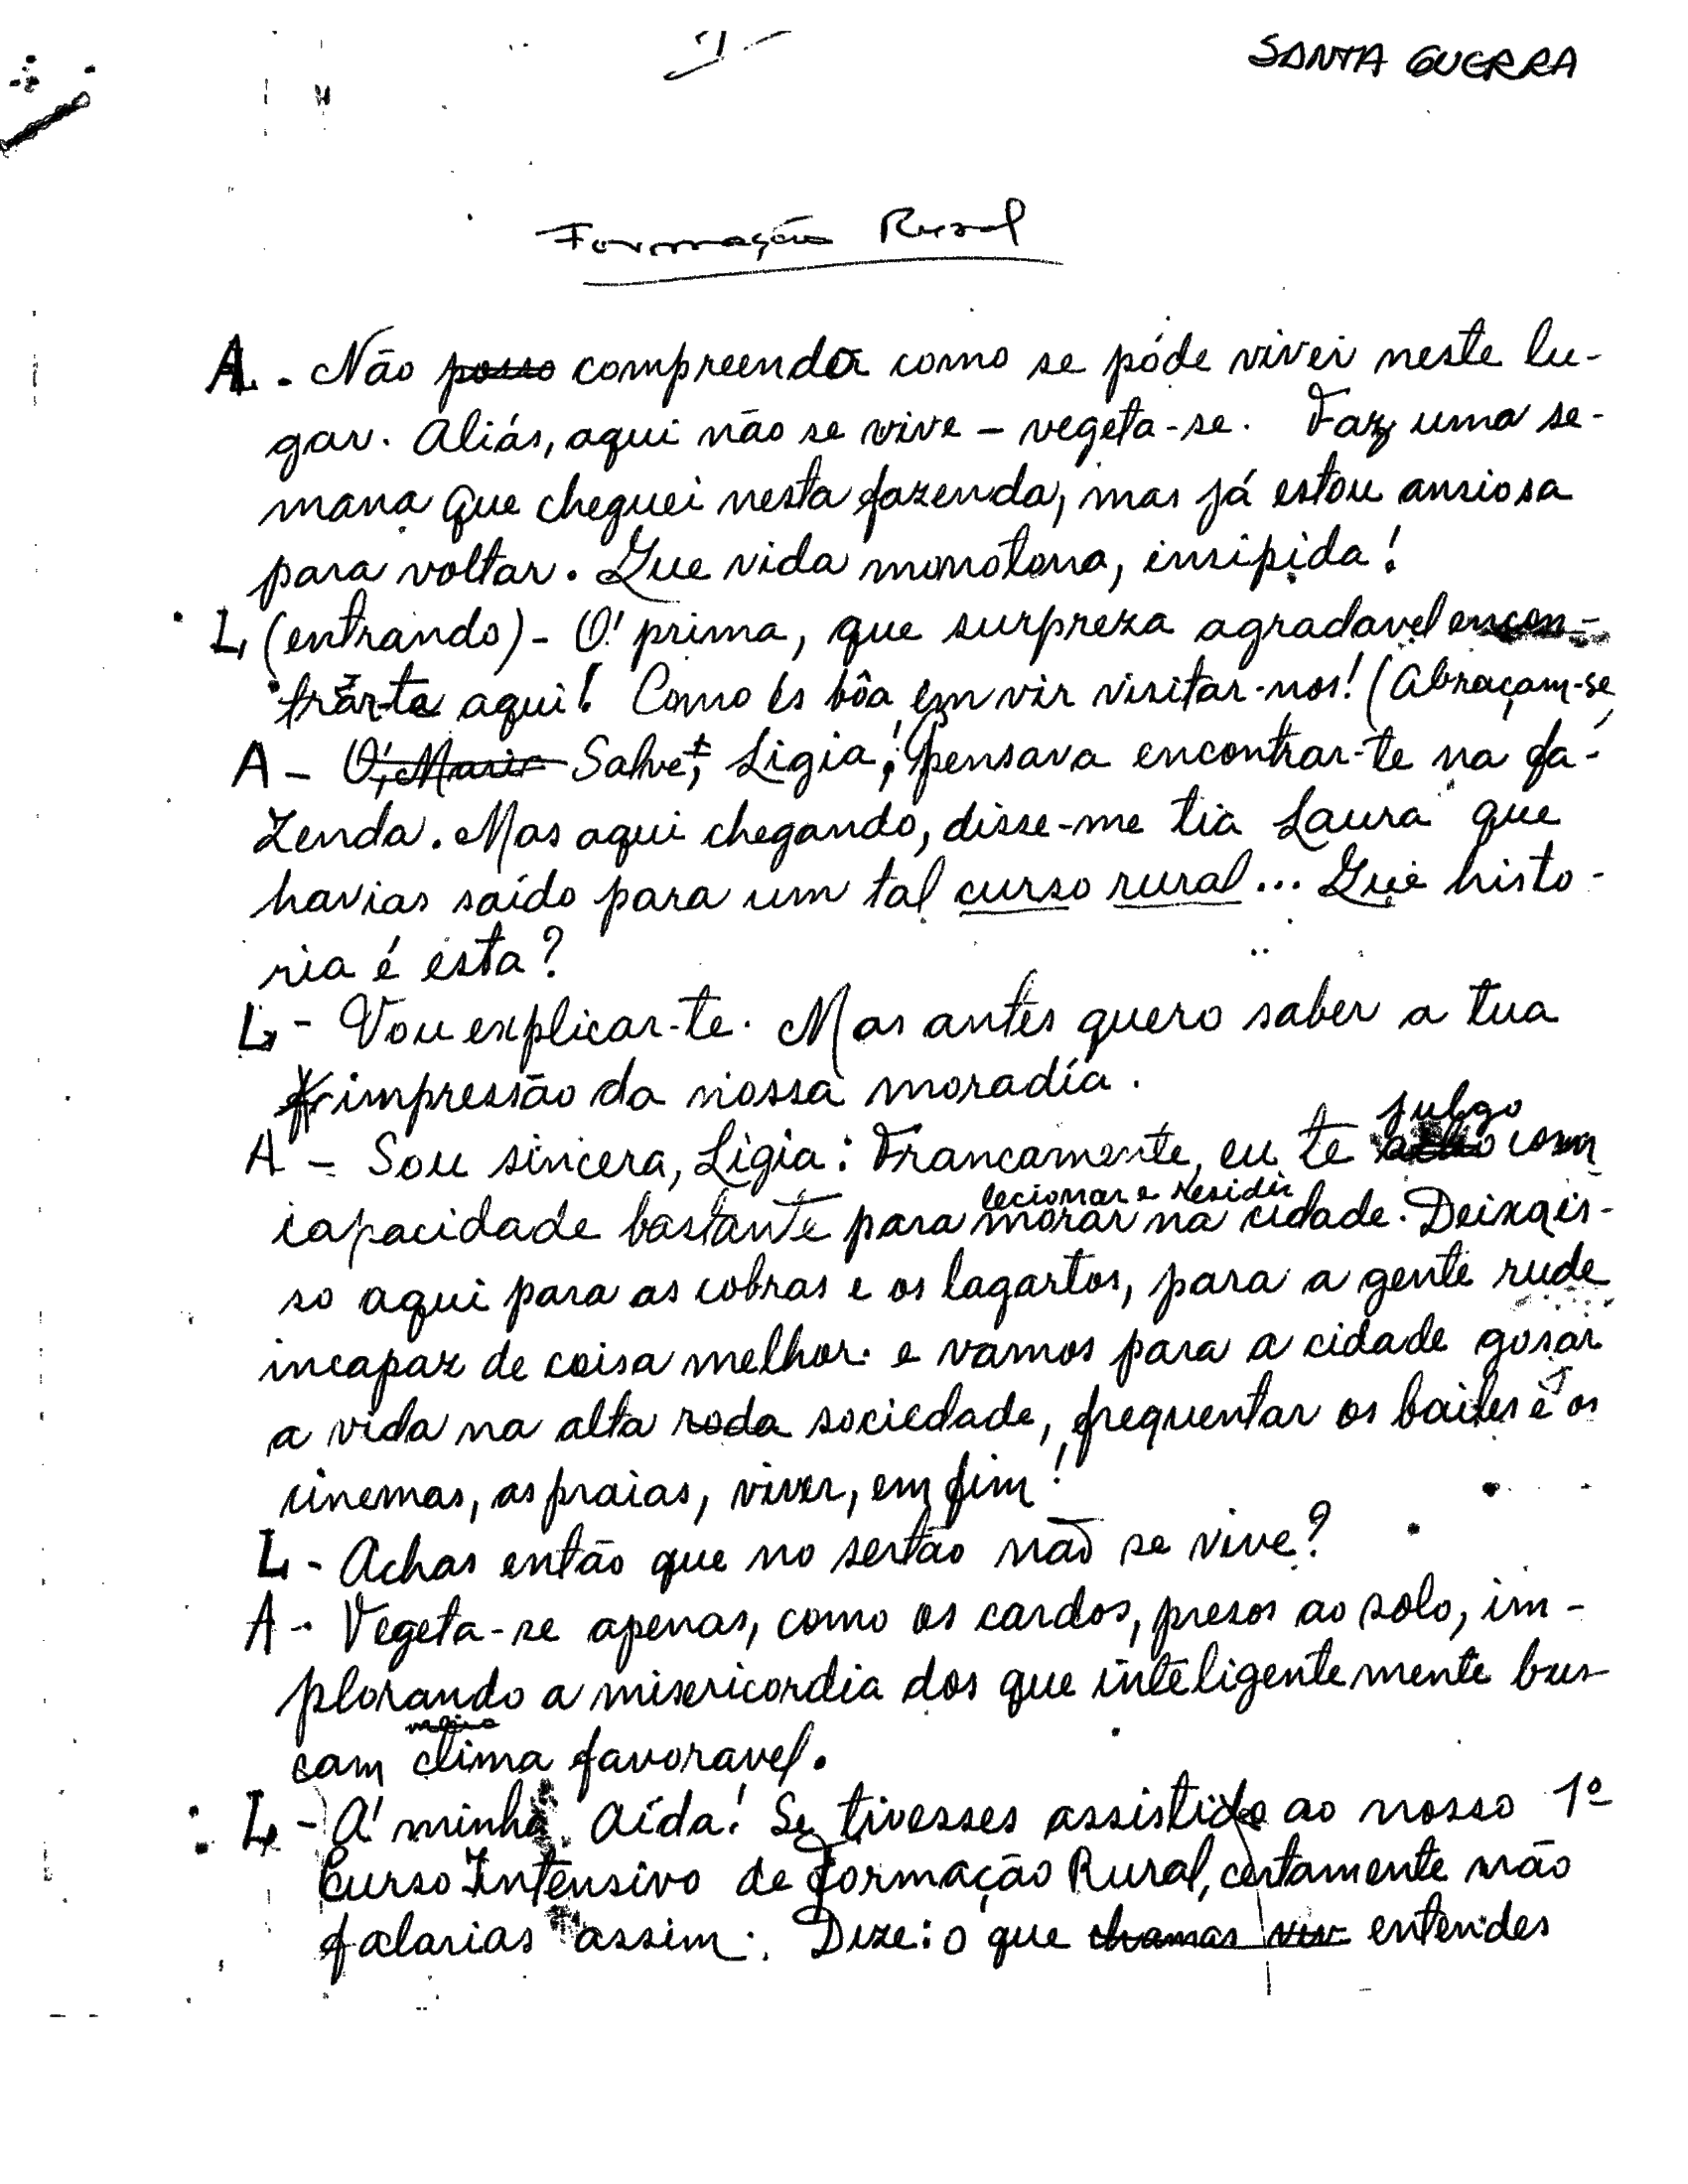 SANTA GUERRA
Formação Rural
A. - Não posso compreendo como se póde viver neste lu-
gar. Aliás, aqui não se vive - vegeta-se. Faz uma se-
mana que cheguei nesta fazenda, mas já estou ansiosa
para voltar. Que vida monotona, insipida!
L (entrando) - O! prima, que surpreza agradavel encon-
trar-te aqui! Como és bôa em vir visitar-nos! (Abraçam-se
A - O', Maria Salve, Ligia! pensava encontrar-te na fa-
zenda. Mas aqui chegando, disse-me tia Laura que
havias saído para um tal curso rural... Que histo-
ria é esta?
L - Vou explicar-te. Mas antes quero saber a tua
impressão da nossa moradía.
julgo
A - Sou sincera, Ligia: Francamente, eu te acho com
lecionar e residir
capacidade bastante para morar na cidade. Deixa is-
so aqui para as cobras e os lagartos, para a gente rude
incapaz de coisa melhor e vamos para a cidade gosar
a vida na alta roda sociedade, frequentar os bailes e os
cinemas, as praias, viver, em fim!
L - Achas então que no sertão não se vive?
A - Vegeta-se apenas, como os cardos, presos ao solo, im-
plorando a misericordia dos que inteligentemente bus-
meio
cam clima favoravel.
L - A! minha Aída! Se tivesses assistido ao nosso 1º
Curso Intensivo de Formação Rural, certamente não
falarias assim. Dize: o que chamas viv entendes